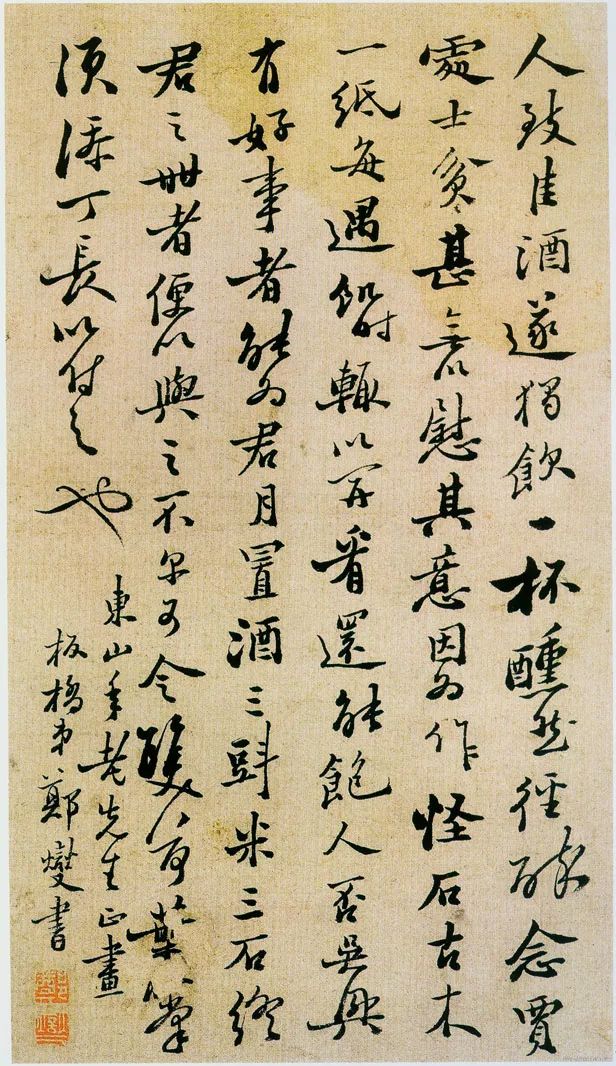 人致佳酒遂獨飲一杯醺然徑醉念賈
處士貧甚無以慰其意因為作怪石古木
一紙每遇飢時輒以開看還能飽人否吳興
有好事者能為君月置酒三㪷米三石終
君之世者便以與之不尔可令雙荷葉
須添丁長以付之也
東山年老先生正畫
板橋弟鄭燮書